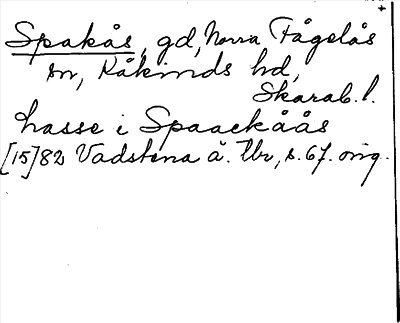 Spakås, gd, Norra Fågelås
sn, Kåkinds hd,
Skarab. l.
hasse i Spaackåås
[15]82 Vadstena ä. tbr, s. 67. orig.